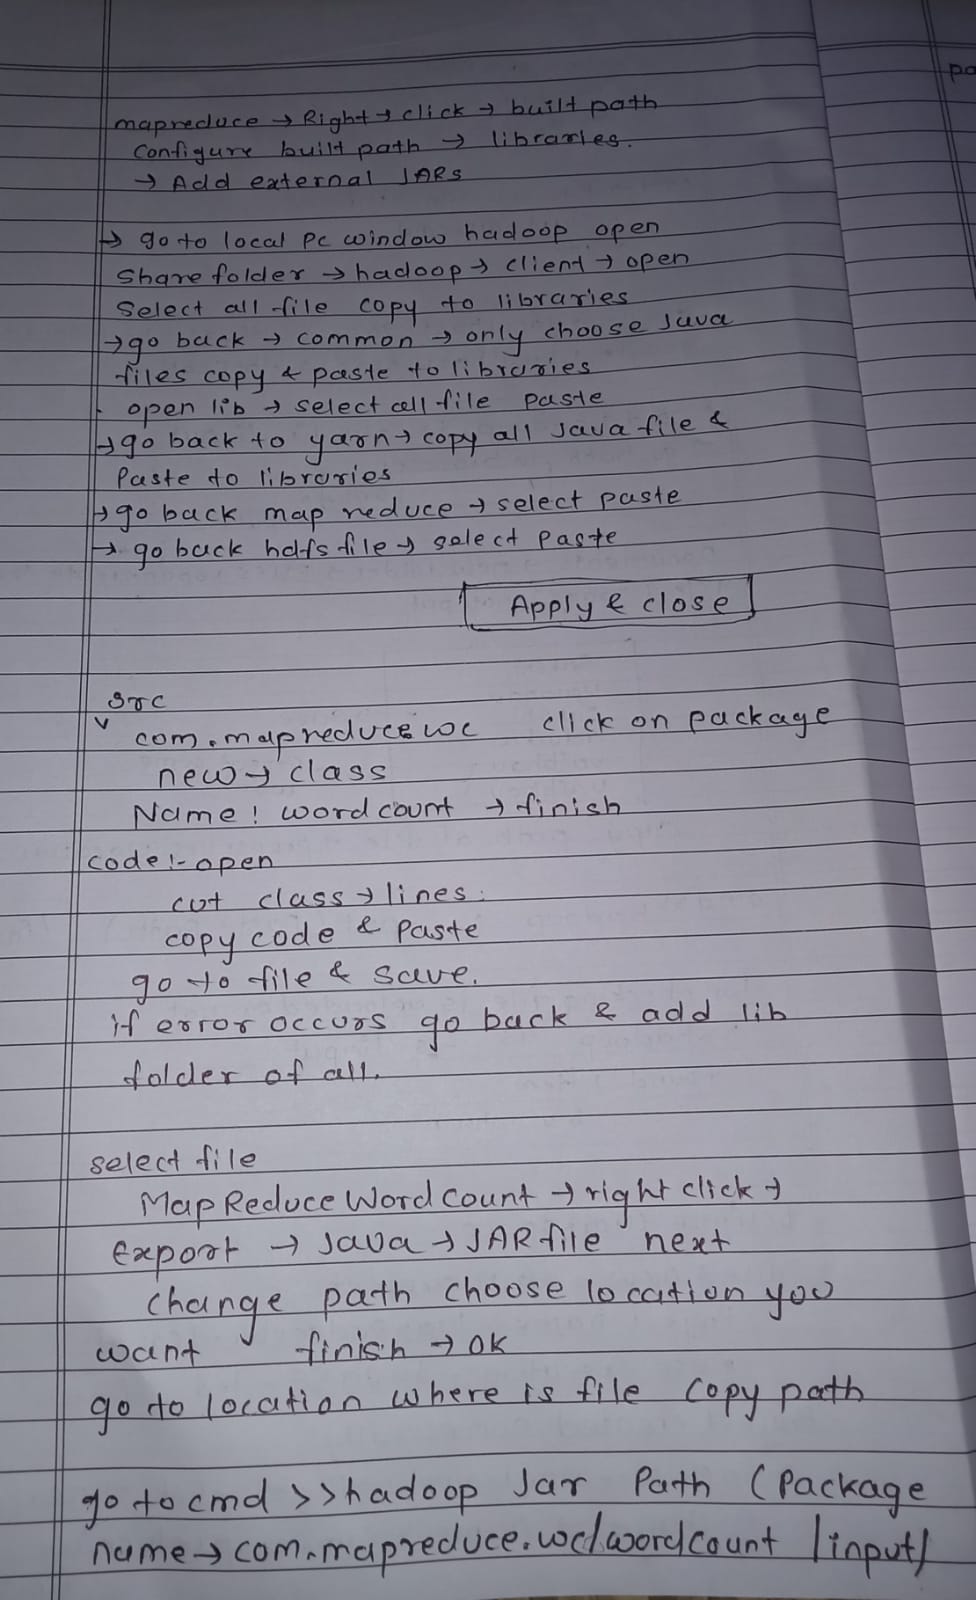 pa
mapreduce → Right → click → built path
configure built path → libraries.
→ Add external JARs
→ go to local pc window hadoop open
Share folder → hadoop → client → open
Select all file copy to libraries
→ go back → common → only choose Java
files copy & paste to libraries
open lib → select all file paste
→ go back to yarn → copy all Java file &
Paste to libraries
→ go back map reduce → select paste
→ go back hdfs file → select paste
Apply & close
src
com.mapreduce wc click on package
new → class
Name : wordcount → finish
code :- open
cut class → lines.
copy code & Paste
go to file & save.
if error occurs go back & add lib
folder of all.
select file
MapReduce Word Count → right click →
Export → Java → JAR file next
change path choose location you
want finish → ok
go to location where is file copy path
go to cmd >> hadoop Jar Path (Package
name → com.mapreduce.wc/wordcount /input/